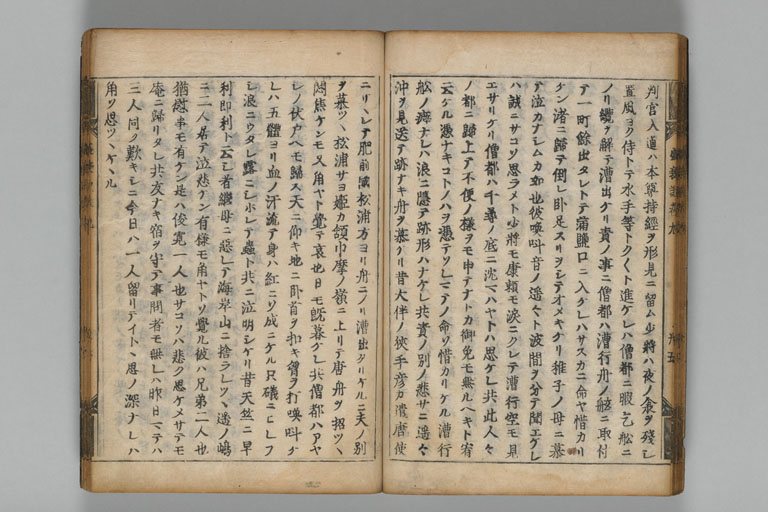 判官入道ハ本尊持經ヲ形見ニ留ム少將ハ夜ノ衾ヲ殘シ
置風ヨク侍トテ水手等トクト進ケレハ僧都ニ暇乞船ニ
ノリ纜ヲ解テ漕出ケリ責ノ事ニ僧都ハ漕行舟ノ舷ニ取付
テ一町餘出タレトテ滿鹽口ニ入ケレハサスカニ命ヤ惜カリ
ケン渚ニ歸テ倒レ臥足スリヲシテオメキケリ稚子ノ母ニ慕
テ泣カナシムカ如也彼喚叫音ノ遥々ト波間ヲ分テ聞エケレ
ハ誠ニサコソ思ラメト少將モ康頼モ涙ニクレテ漕行空モ見
エサリケリ僧都ハ千尋ノ底ニ沈ハヤトハ思ケレ共此人々
ノ都ニ歸上テ不便ノ樣ヲモ申テナトカ御免モ無ルヘキト宥
云ケル憑ナキコトノハヲ憑テソレマテノ命ソ惜カリケル漕行
船ノ癖ナレハ浪ニ隱テ跡形ハナケレ共責ノ別ノ悲サニ遥々
沖ヲ見送テ跡ナキ舟ヲ慕ケリ昔大伴ノ狹手彦カ遣唐使
ニヤハレテ肥前國松浦方ヨリ舟ニノリ漕出タリケルニ夫ノ別
ヲ慕ツヽ松浦サヨ姫カ領巾摩ノ嶺ニ上リテ唐舟ヲ招ツヽ
悶焦ケンモ又角ヤト覺テ哀也日モ既暮ケレ共僧都ハアヤ
シノ伏戸ヘモ歸ス天ニ仰キ地ニ臥首ヲ扣キ胸ヲ打喚叫ケ
レハ五體ヨリ血ノ汗流テ身ハ紅ニソ成ニケル只礒ニヒレフ
シ浪ニウタレ露ニシホレテ蟲ト共ニ泣明シケリ昔天竺ニ早
利即利ト云シ者繼母ニ惡レテ海岸山ニ捨ラレツヽ遥ノ嶋
ニ二人居テ泣悲ケン有樣モ角ヤトソ覺ル彼ハ兄弟二人也
猶慰事モ有ケン是ハ俊寛一人也サコソハ悲ク思ケメサテモ
庵ニ歸リタレ共友ナキ宿ヲ守テ事問者モ無レハ昨日マテハ
三人同ク歎キシニ今日ハ一人留リテイトヽ思ノ深ナレハ
角ソ思ツヽケヽル